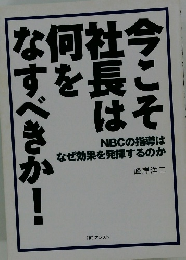 今こそ
社長は
何を
なすべきか!
NBCの指導は
なぜ効果を発揮するのか